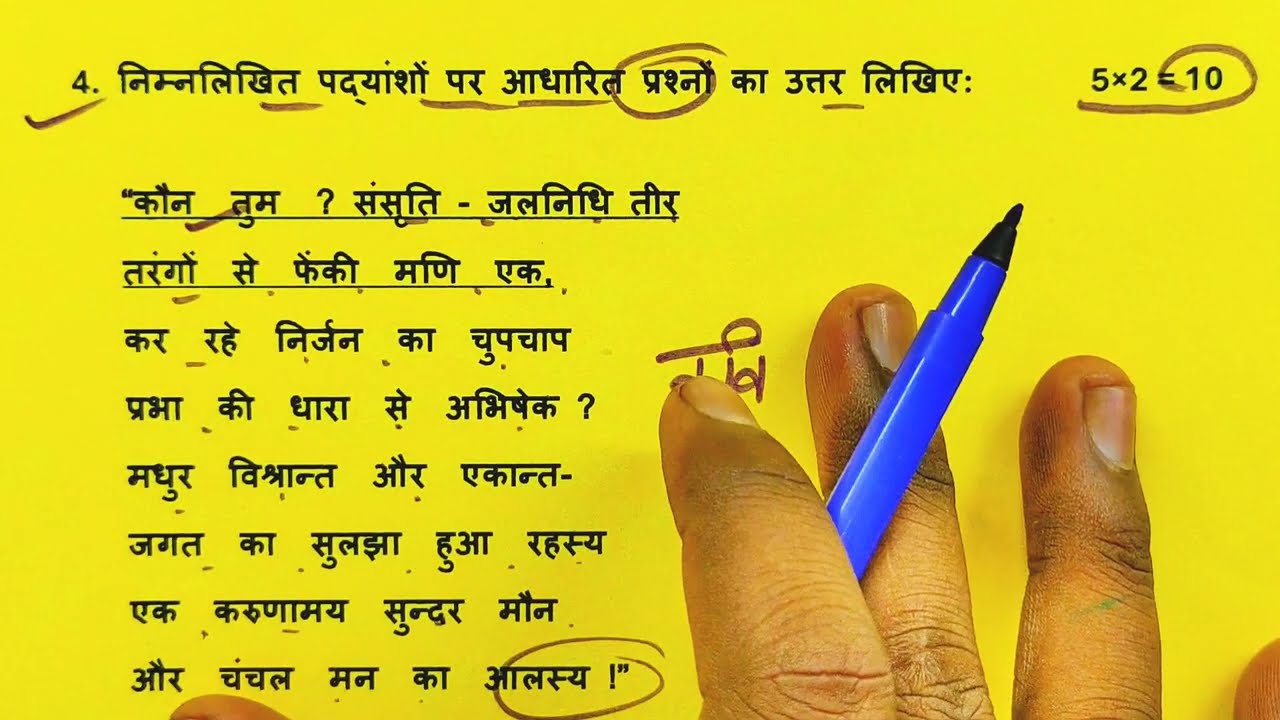 4. निम्नलिखित पद्यांशों पर आधारित प्रश्नों का उत्तर लिखिए: 5×2 = 10
“कौन तुम ? संसृति - जलनिधि तीर
तरंगों से फेंकी मणि एक,
कर रहे निर्जन का चुपचाप
प्रभा की धारा से अभिषेक ?
मधुर विश्रान्त और एकान्त-
जगत का सुलझा हुआ रहस्य
एक करुणामय सुन्दर मौन
और चंचल मन का आलस्य !”